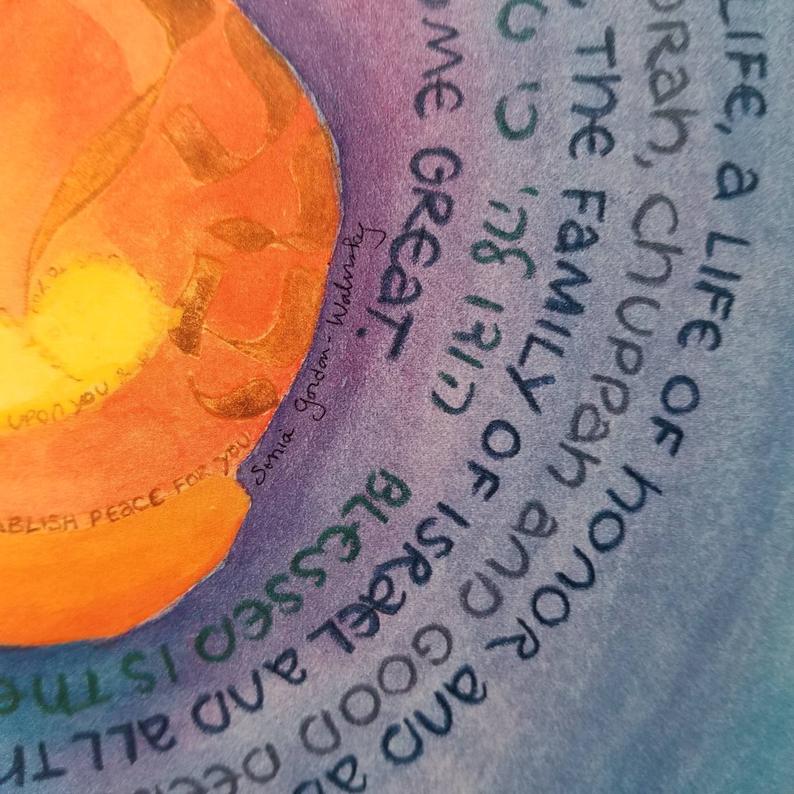 LIFE, a LIFE OF honor and ab
orah, chuppah and GOOD DEE
The FAMILY OF ISRAEL and ALL Th
BLESSED IS The
ome GREAT.
Sonia Gordon-Walinsky
ABLISH PEaCE FOR YOU
UPON YOU &